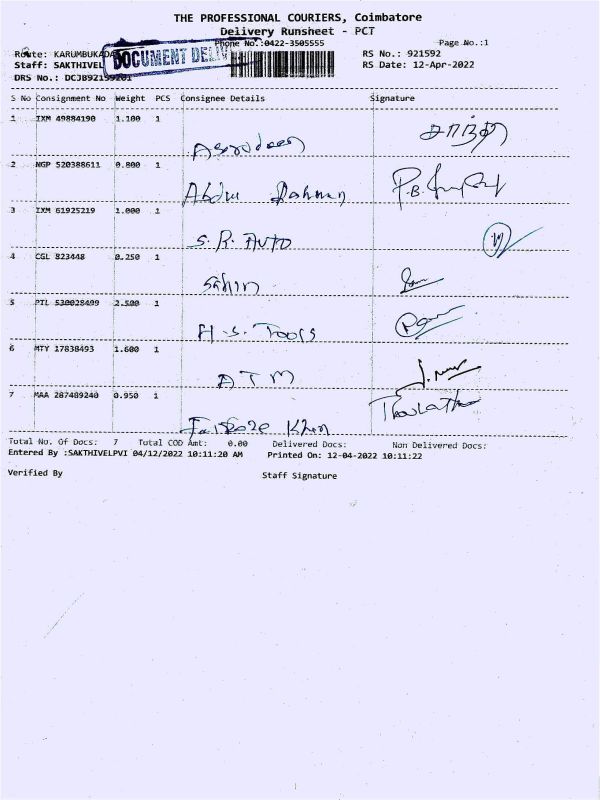 THE PROFESSIONAL COURIERS, Coimbatore
Delivery Runsheet - PCT
Phone No.:0422-3505555 Page No.:1
Route: KARUMBUKADA RS No.: 921592
Staff: SAKTHIVEL RS Date: 12-Apr-2022
DOCUMENT DELIV
DRS No.:
S No Consignment No Weight PCS Consignee Details Signature
1 IXM 49884190 1.100 1
2 NGP 520388611 0.800 1 Abdul Rahman
3 IXM 61925219 1.000 1 S.R. AUTO
4 CGL 823448 0.250 1
5 PTL 530028499 2.500 1 H.S. Tools
6 MTY 17838493 1.600 1 A T M
7 MAA 287489240 0.950 1 Khan
Total No. Of Docs: 7 Total COD Amt: 0.00 Delivered Docs: Non Delivered Docs:
Entered By :SAKTHIVELPVI 04/12/2022 10:11:20 AM Printed On: 12-04-2022 10:11:22
Verified By Staff Signature